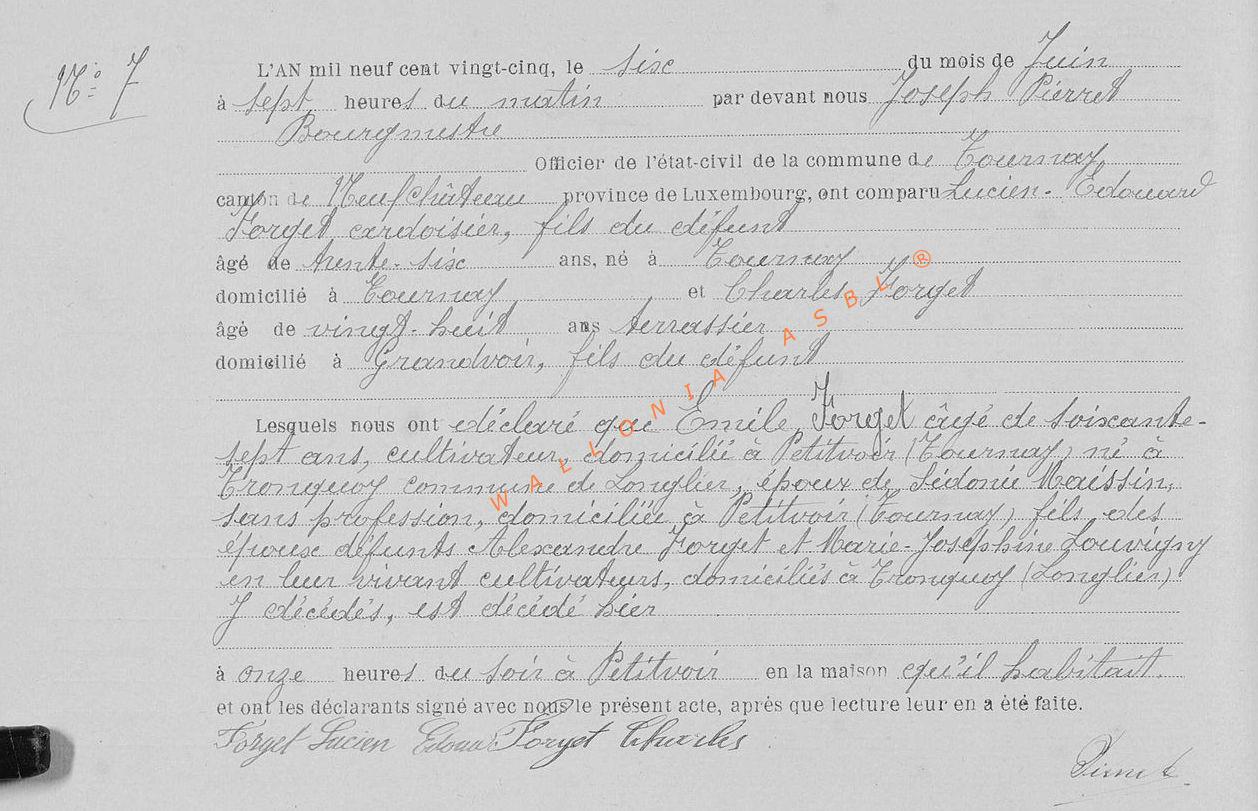 N° 7
L'AN mil neuf cent vingt-cinq, le sixe du mois de Juin
à sept heures du matin par devant nous Joseph Pierret
Bourgmestre
Officier de l'état-civil de la commune de Tournay,
canton de Neufchâteau province de Luxembourg, ont comparu Lucien-Edouard
Forget ardoisier, fils du défunt
âgé de trente-six ans, né à Tournay
domicilié à Tournay et Charles Forget
âgé de vingt-huit ans terrassier
domicilié à Grandvoir, fils du défunt
Lesquels nous ont déclaré que Emile, Forget âgé de soixante-
sept ans, cultivateur, domicilié à Petitvoir (Tournay) né à
Tronquoy commune de Longlier, époux de Sidonie Maissin,
sans profession, domiciliée à Petitvoir (Tournay) fils des
époux défunts Alexandre Forget et Marie-Joséphine Louvigny
en leur vivant cultivateurs, domiciliés à Tronquoy (Longlier)
y décédés, est décédé hier
à onze heures du soir à Petitvoir en la maison qu'il habitait.
et ont les déclarants signé avec nous le présent acte, après que lecture leur en a été faite.
Forget Lucien Edoua Forget Charles
Pierret
WALLONIA ASBL®